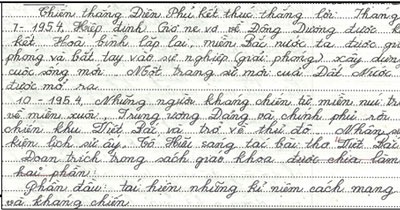 Chiến thắng Điện Phủ kết thúc thắng lợi. Tháng
7-1954, Hiệp định Giơ ne vơ về Đông Dương được k
kết. Hoà bình lập lại, miền Bắc nước ta được gi
phóng và bắt tay vào sự nghiệp (giải phóng) xây dựn
cuộc sống mới. Một trang sử mới của Đất Nước
được mở ra.
10-1954, Những người kháng chiến từ miền núi tr
về miền xuôi. Trung ương Đảng và chính phủ rời
chiến khu Việt Bắc và trở về thủ đô. Nhân s
kiện lịch sử ấy, Tố Hữu sáng tác bài thơ "Việt Bắc
Đoạn trích trong sách giáo khoa được chia làm
hai phần:
Phần đầu: tái hiện những kỉ niệm cách mạng
và kháng chiến